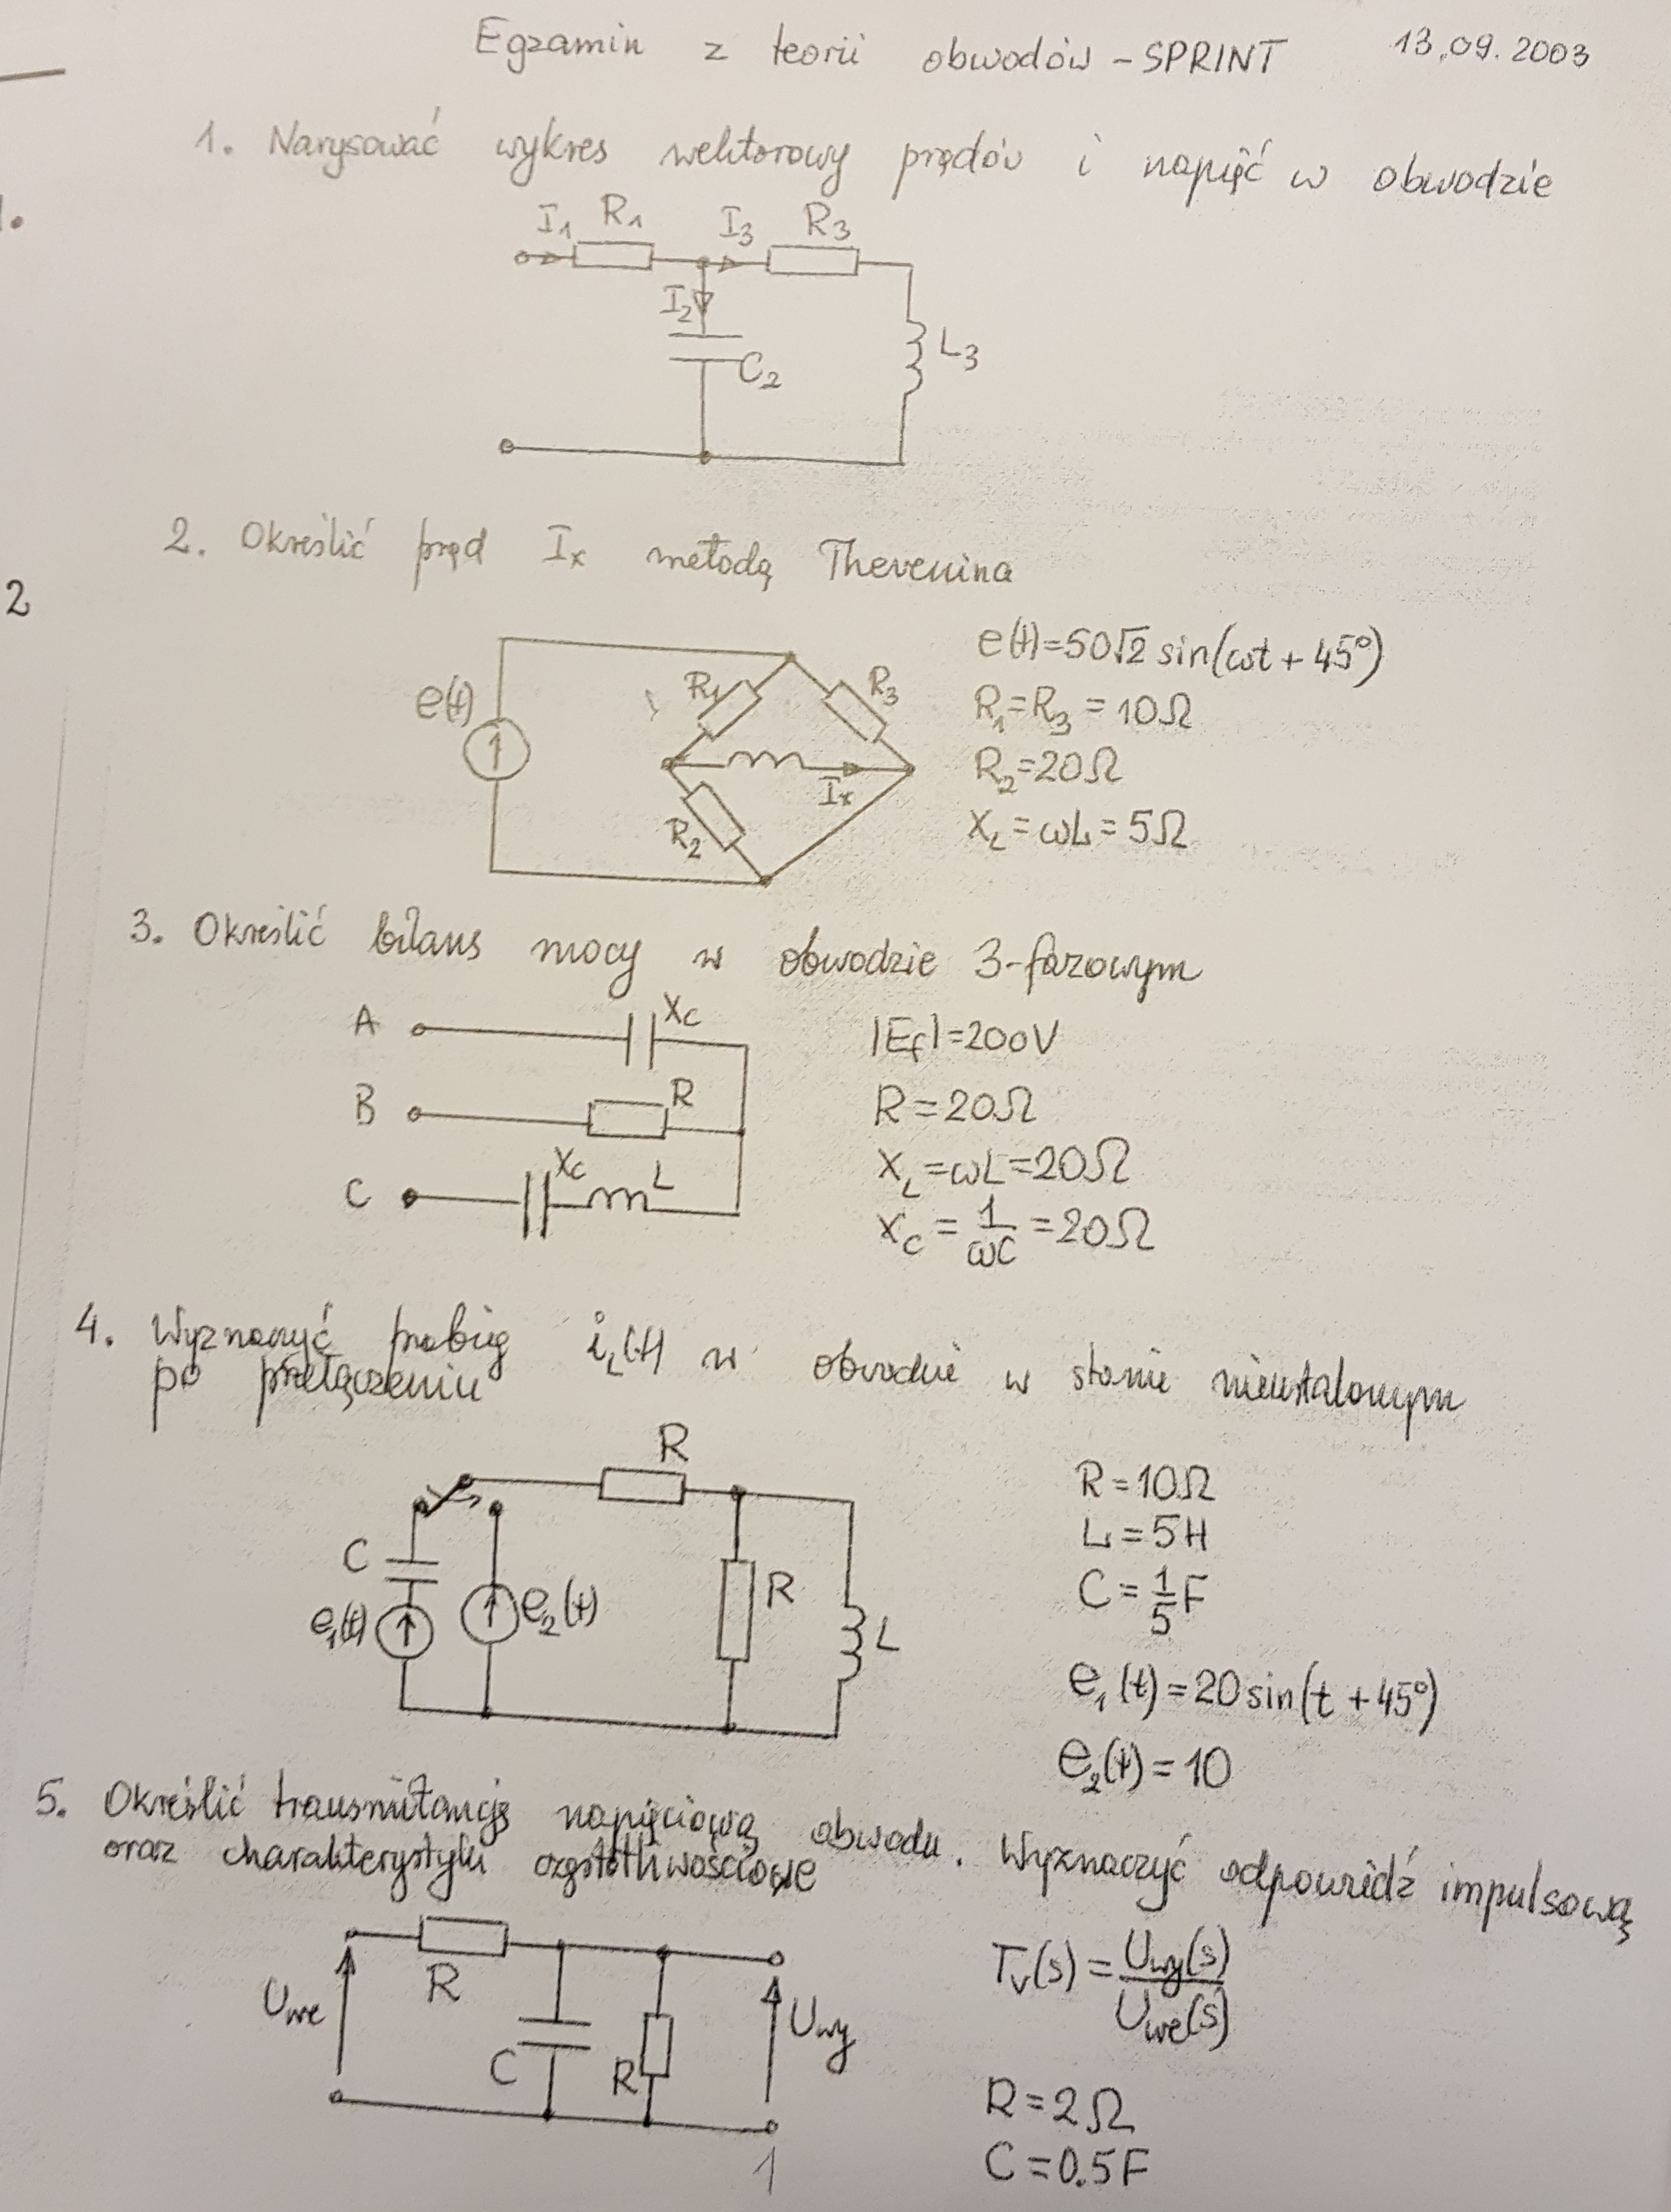 Egzamin z teorii obwodów - SPRINT 13.09.2003
1. Narysować wykres wektorowy prądów i napięć w obwodzie
1.
I₁ R₁ I₃ R₃
I₂
C₂ L₃
2. Określić prąd Iₓ metodą Thevenina
2
e(t)=50√2 sin(ωt + 45°)
e(t) R₁ R₃
R₁=R₃ = 10Ω
R₂=20Ω
Iₓ
R₂
X_L = ωL = 5Ω
3. Określić bilans mocy w obwodzie 3-fazowym
A X_C
|E_f|=200V
B R
R = 20Ω
C X_C L
X_L = ωL = 20Ω
X_C = 1/ωC = 20Ω
4. Wyznaczyć przebieg i_L(t) w obwodzie w stanie nieustalonym
po przełączeniu
R
R = 10Ω
L = 5H
C
C = 1/5 F
R
e₁(t) e₂(t) L
e₁(t) = 20 sin(t + 45°)
e₂(t) = 10
5. Określić transmitancję napięciową obwodu. Wyznaczyć odpowiedź impulsową
oraz charakterystyki częstotliwościowe
R
T_v(s) = U_wy(s)/U_we(s)
U_we U_wy
C R
R = 2Ω
C = 0.5F
1